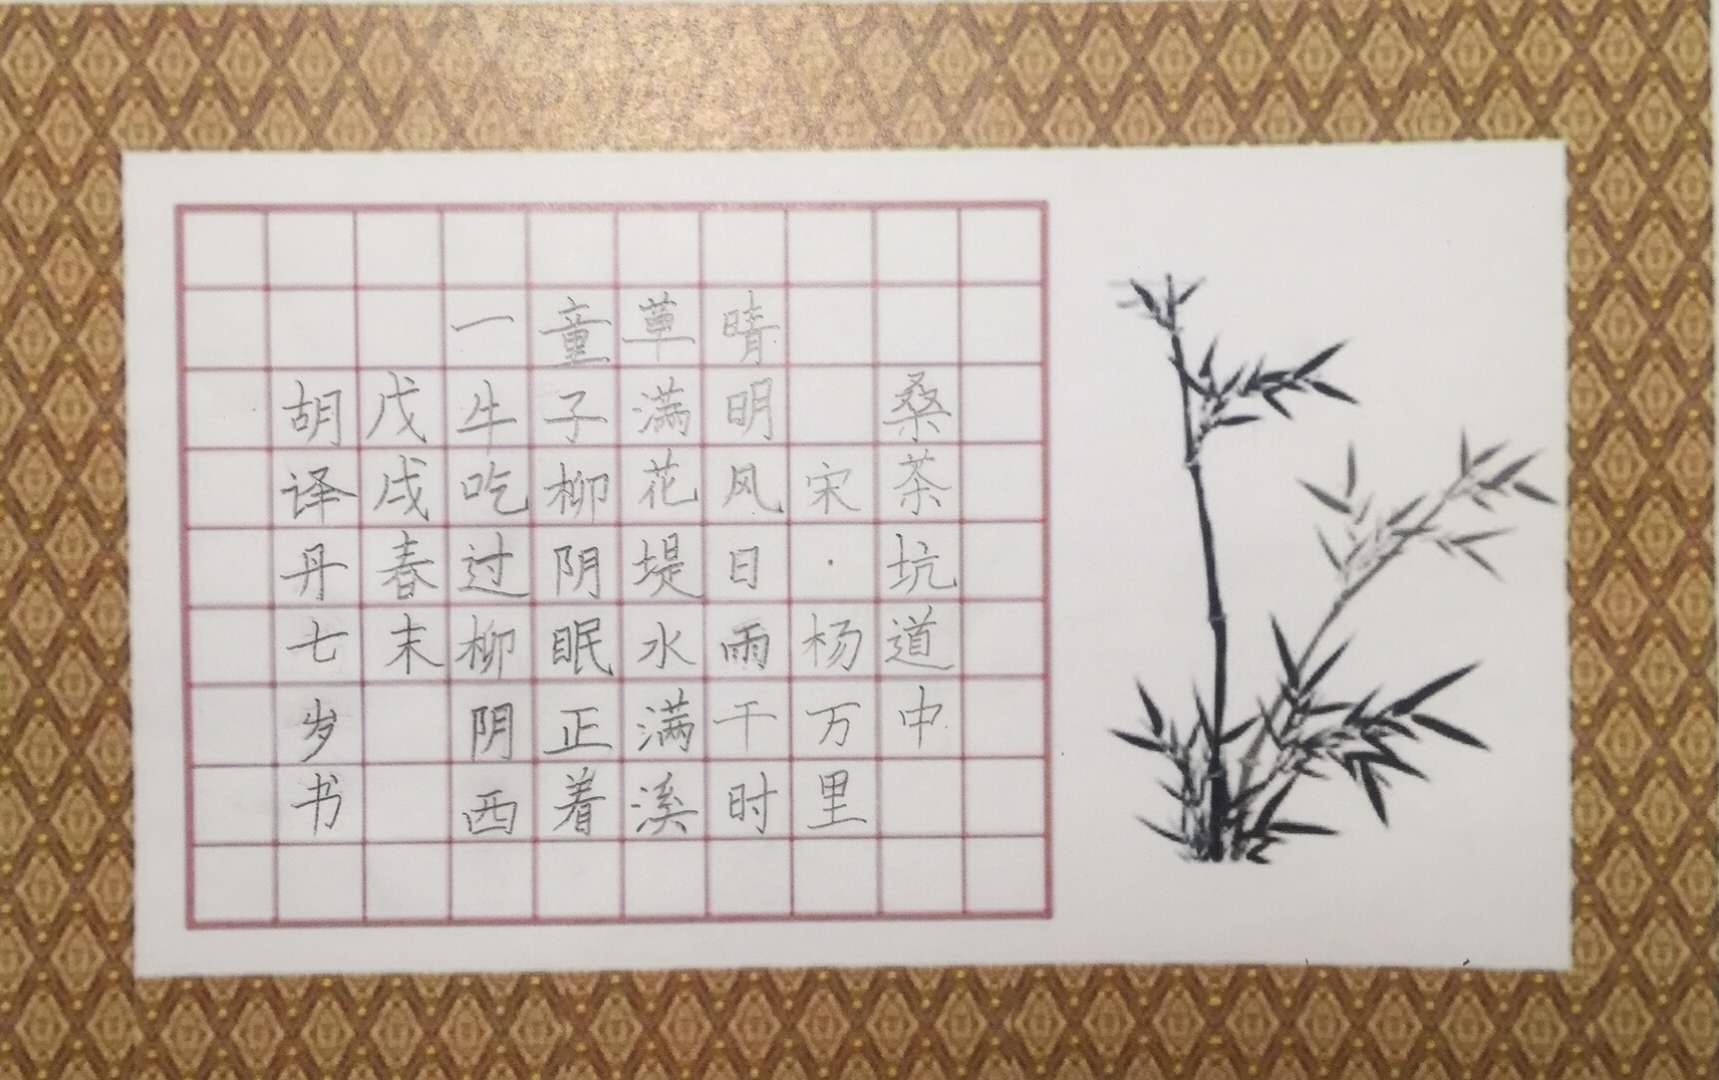 桑茶坑道中
宋·杨万里
晴明风日雨干时
草满花堤水满溪
童子柳阴眠正着
一牛吃过柳阴西
戊戌春末
胡译丹七岁书